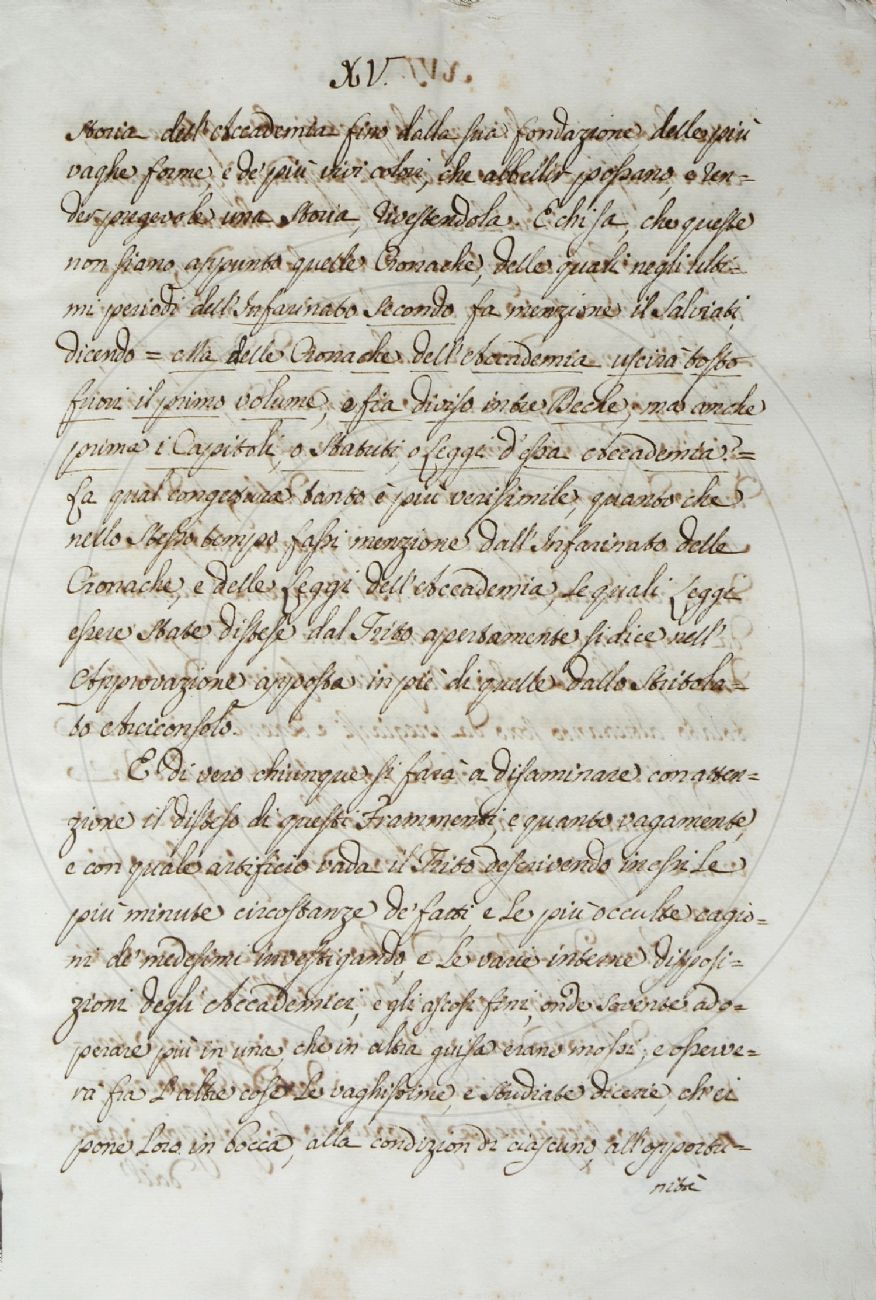 XV.
Storia dell'Accademia fino dalla sua fondazione, delle più
vaghe forme, e de' più vivi colori, che abbellir possano, e ren=
der pregevole una Storia, rivestendola. E chi sa, che queste
non siano appunto quelle Cronache, delle quali negli ulti=
mi periodi dell'Infarinato Secondo fa menzione il Salviati,
dicendo = Ma delle Cronache dell'Accademia uscirà tosto
fuori il primo volume, e fia diviso in tre Deche, ma anche
prima i Capitoli, o Statuti, o Leggi d'essa Accademia? =
La qual congettura tanto è più verisimile, quanto che
nello stesso tempo fassi menzione dall'Infarinato delle
Cronache, e delle Leggi dell'Accademia, le quali Leggi
essere state distese dal Trito apertamente si dice nell'
Approvazione apposta in piè di quelle dallo Stritola=
to Arciconsolo.
E di vero chiunque si farà a disaminare con atten=
zione il disteso di questi Frammenti, e quanto vagamente,
e con quale artificio vada il Trito descrivendo in essi le
più minute circostanze de' fatti, e le più occulte cagio=
ni de' medesimi investigando, e le varie interne disposi=
zioni degli Accademici, e gli ascosi fini, onde sovente ado=
perare più in una, che in altra guisa erano mossi; e osserve=
rà fra l'altre cose le vaghissime, e studiate dicerie, ch'ei
pone loro in bocca, alla condizion di ciascuno, all'opportu=
nità